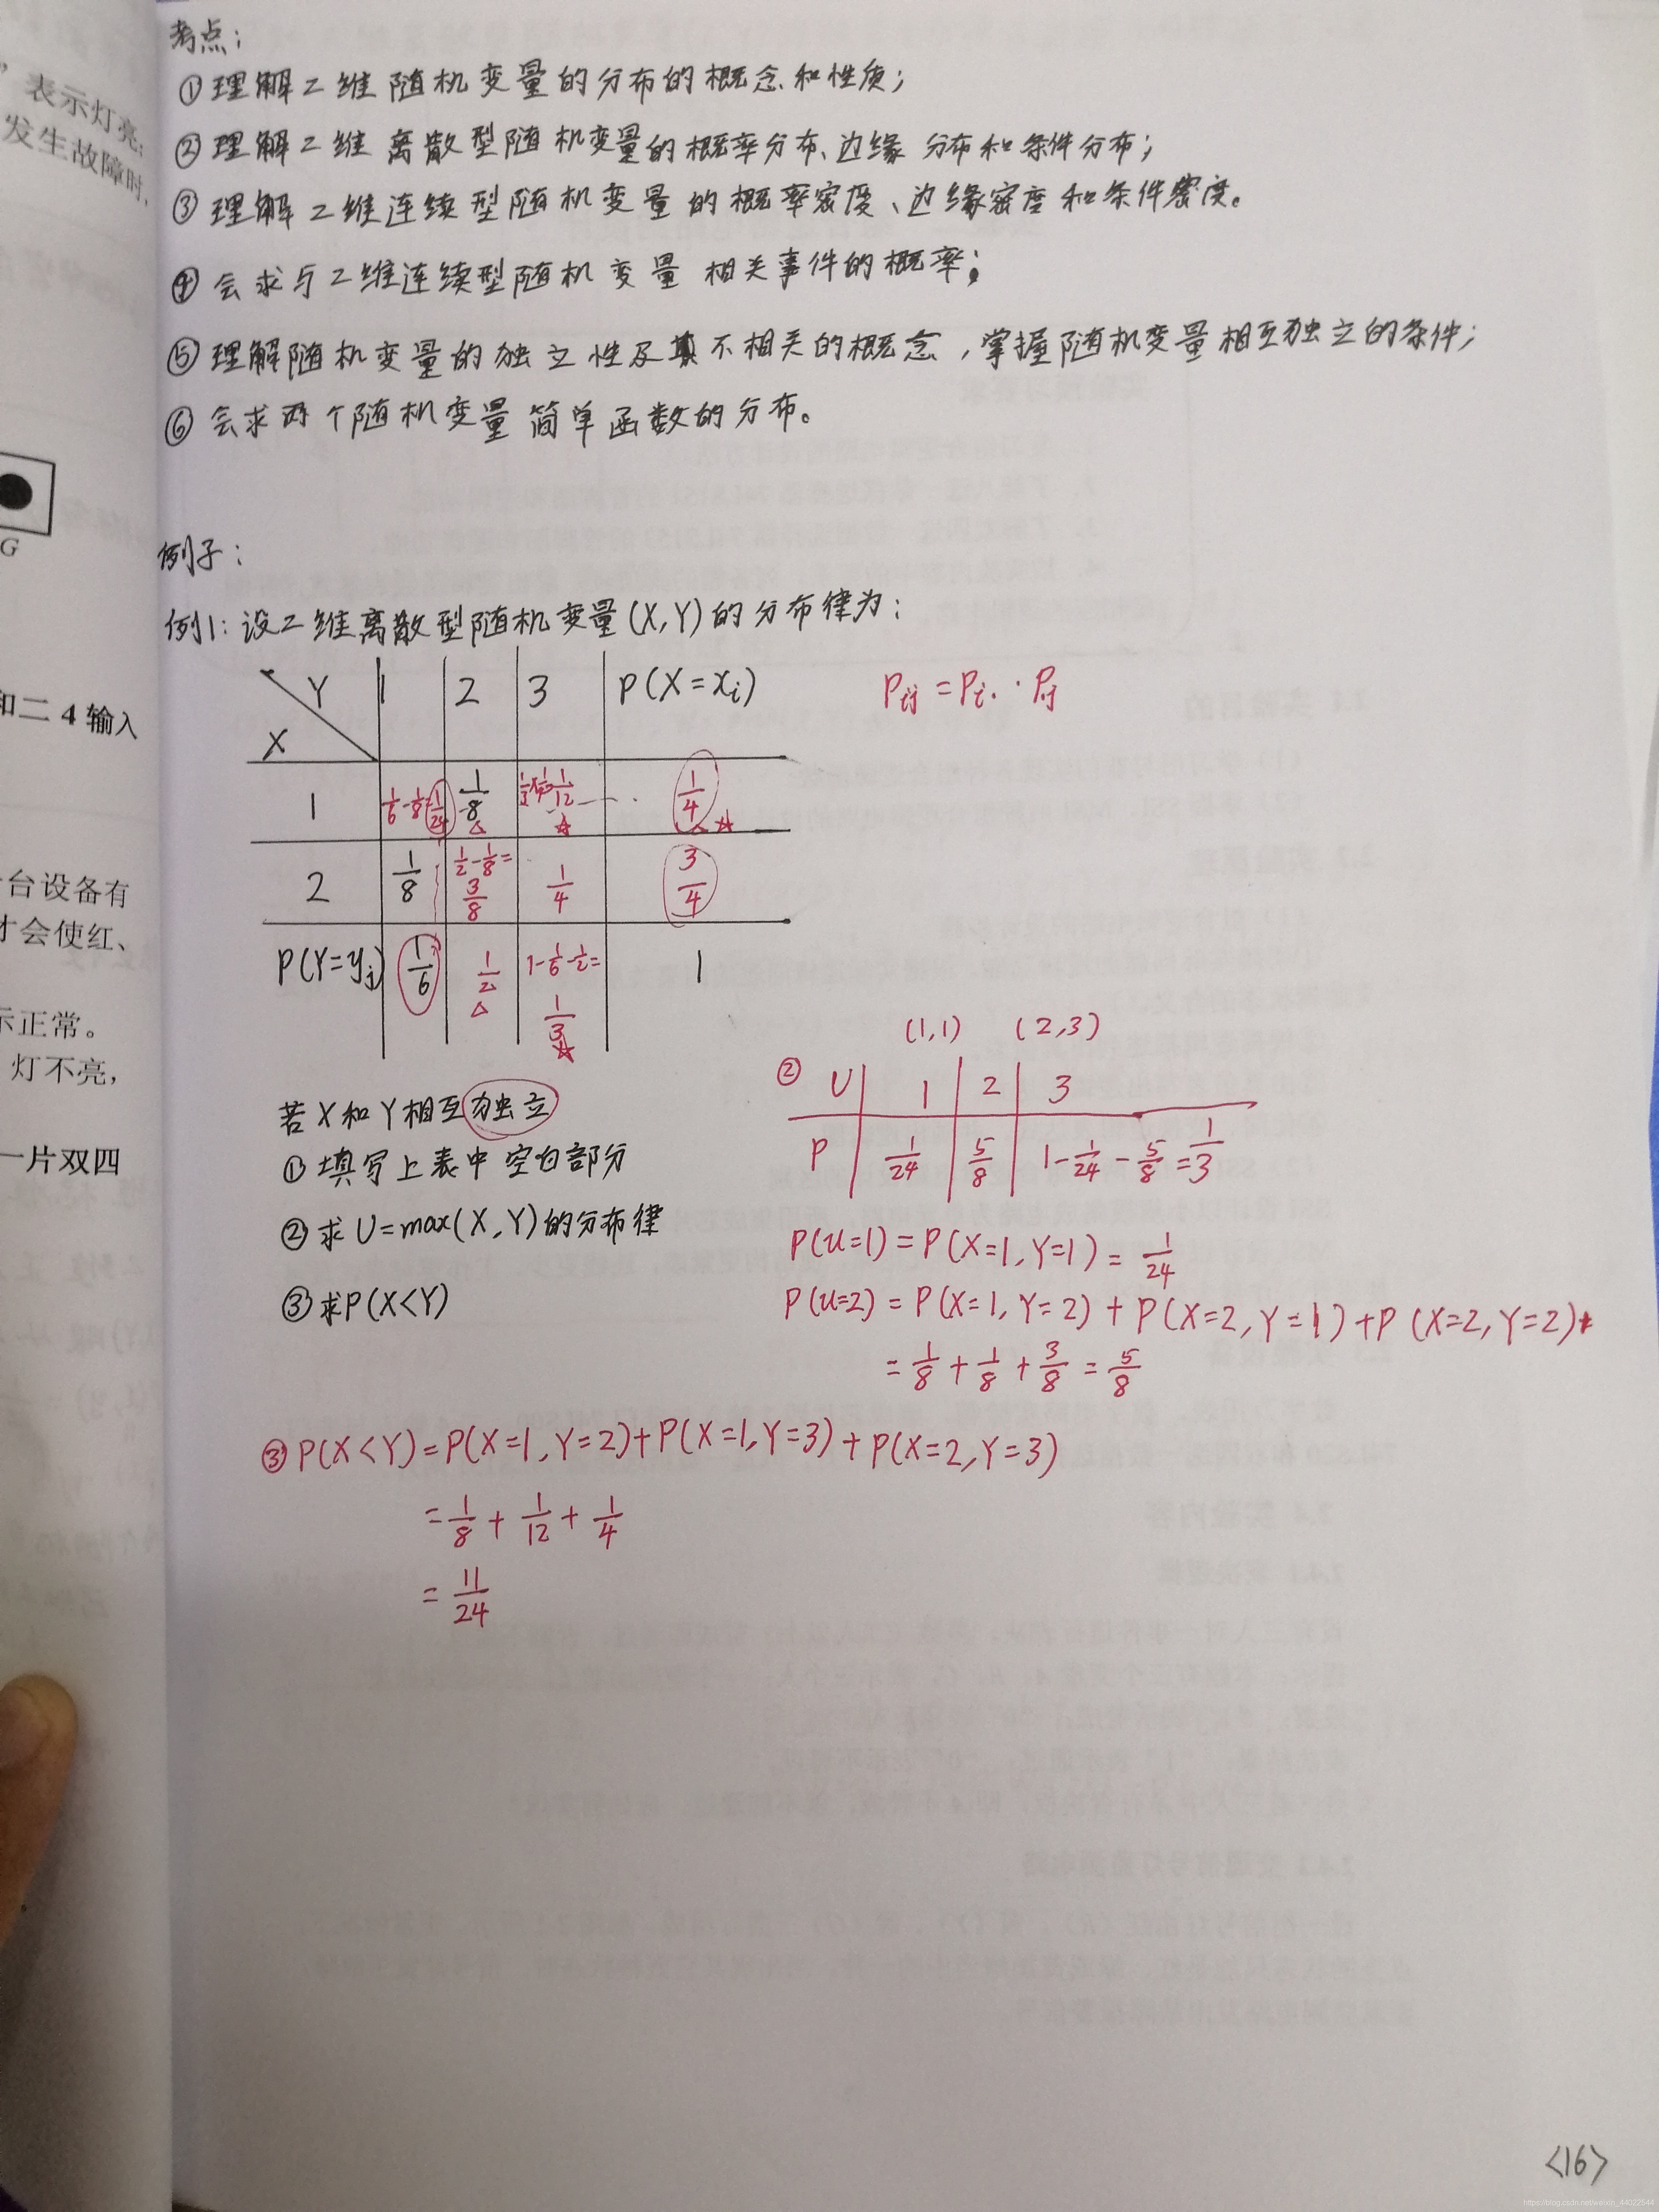 考点：
①理解二维随机变量的分布的概念和性质；
②理解二维离散型随机变量的概率分布、边缘分布和条件分布；
③理解二维连续型随机变量的概率密度、边缘密度和条件密度。
④会求与二维连续型随机变量相关事件的概率；
⑤理解随机变量的独立性及不相关的概念，掌握随机变量相互独立的条件；
⑥会求两个随机变量简单函数的分布。
例子：
例1：设二维离散型随机变量(X,Y)的分布律为：
Y 1 2 3 P(X=xi) Pij=Pi.·Pj
X
1 1/6-1/8=1/24 1/8 1/3×1/4=1/12 1/4
2 1/8 1/2-1/8=3/8 1/4 3/4
P(Y=yj) 1/6 1/2 1-1/6-1/2=1/3 1
若X和Y相互独立
①填写上表中空白部分
②求U=max(X,Y)的分布律
③求P(X<Y)
(1,1) (2,3)
② U 1 2 3
P 1/24 5/8 1-1/24-5/8=1/3
P(U=1)=P(X=1,Y=1)=1/24
P(U=2)=P(X=1,Y=2)+P(X=2,Y=1)+P(X=2,Y=2)
=1/8+1/8+3/8=5/8
③P(X<Y)=P(X=1,Y=2)+P(X=1,Y=3)+P(X=2,Y=3)
=1/8+1/12+1/4
=11/24
<16>
表示灯亮；
发生故障时，
G
和二 4 输入
台设备有
才会使红、
示正常。
灯不亮，
一片双四
https://blog.csdn.net/weixin_44022544